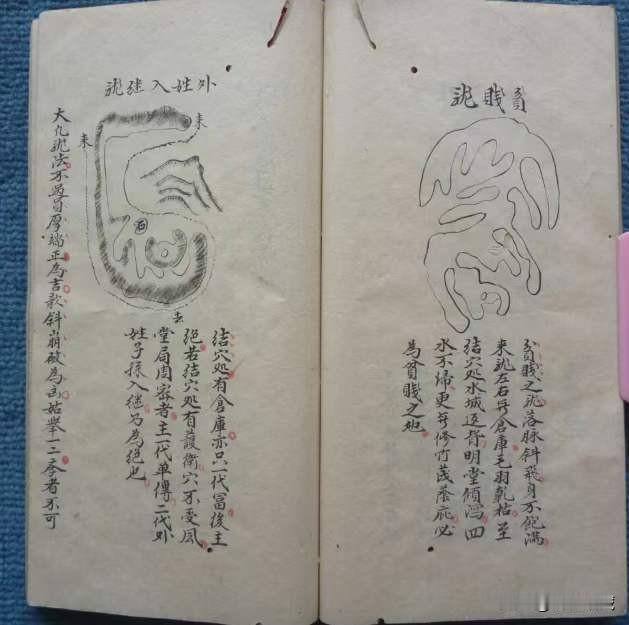 貧賤龍
貧賤之龍落脉斜飛身不飽滿
来龍左右无倉庫毛羽乾枯至
結穴処水城返背明堂傾瀉四
水不歸更无修竹茂蔭庇必
為貧賤之地
外姓入継龍
来
来
去
結穴処有倉庫亦只一代冨後主
絕若結穴処有護衛穴不受風
堂局周密者主一代单傳二代外
姓子孫入継乃為絕也
大凢龍法不過員厚端正為吉欹斜崩破為凶姑舉一二參者不可